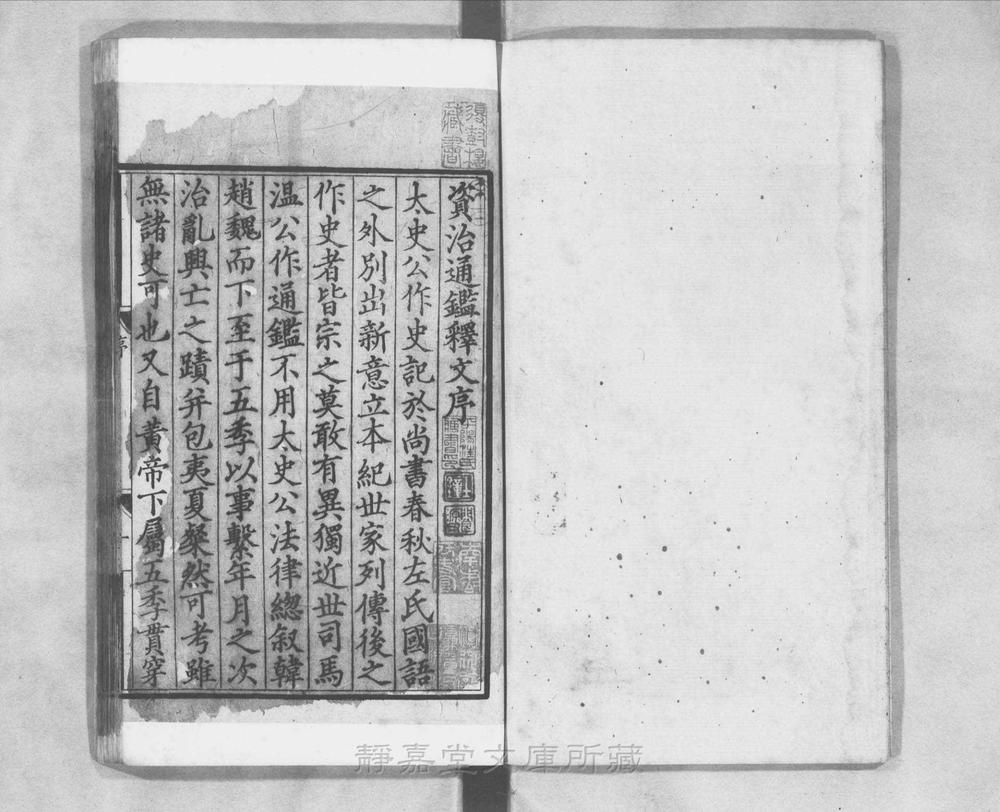 資治通鑑釋文序
太史公作史記於尚書春秋左氏國語
之外別出新意立本紀世家列傳後之
作史者皆宗之莫敢有異獨近世司馬
温公作通鑑不用太史公法律緫叙韓
趙魏而下至于五季以事繫年月之次
治亂興亡之蹟并包夷夏粲然可考雖
無諸史可也又自黃帝下屬五季貫穿
序
靜嘉堂文庫所藏